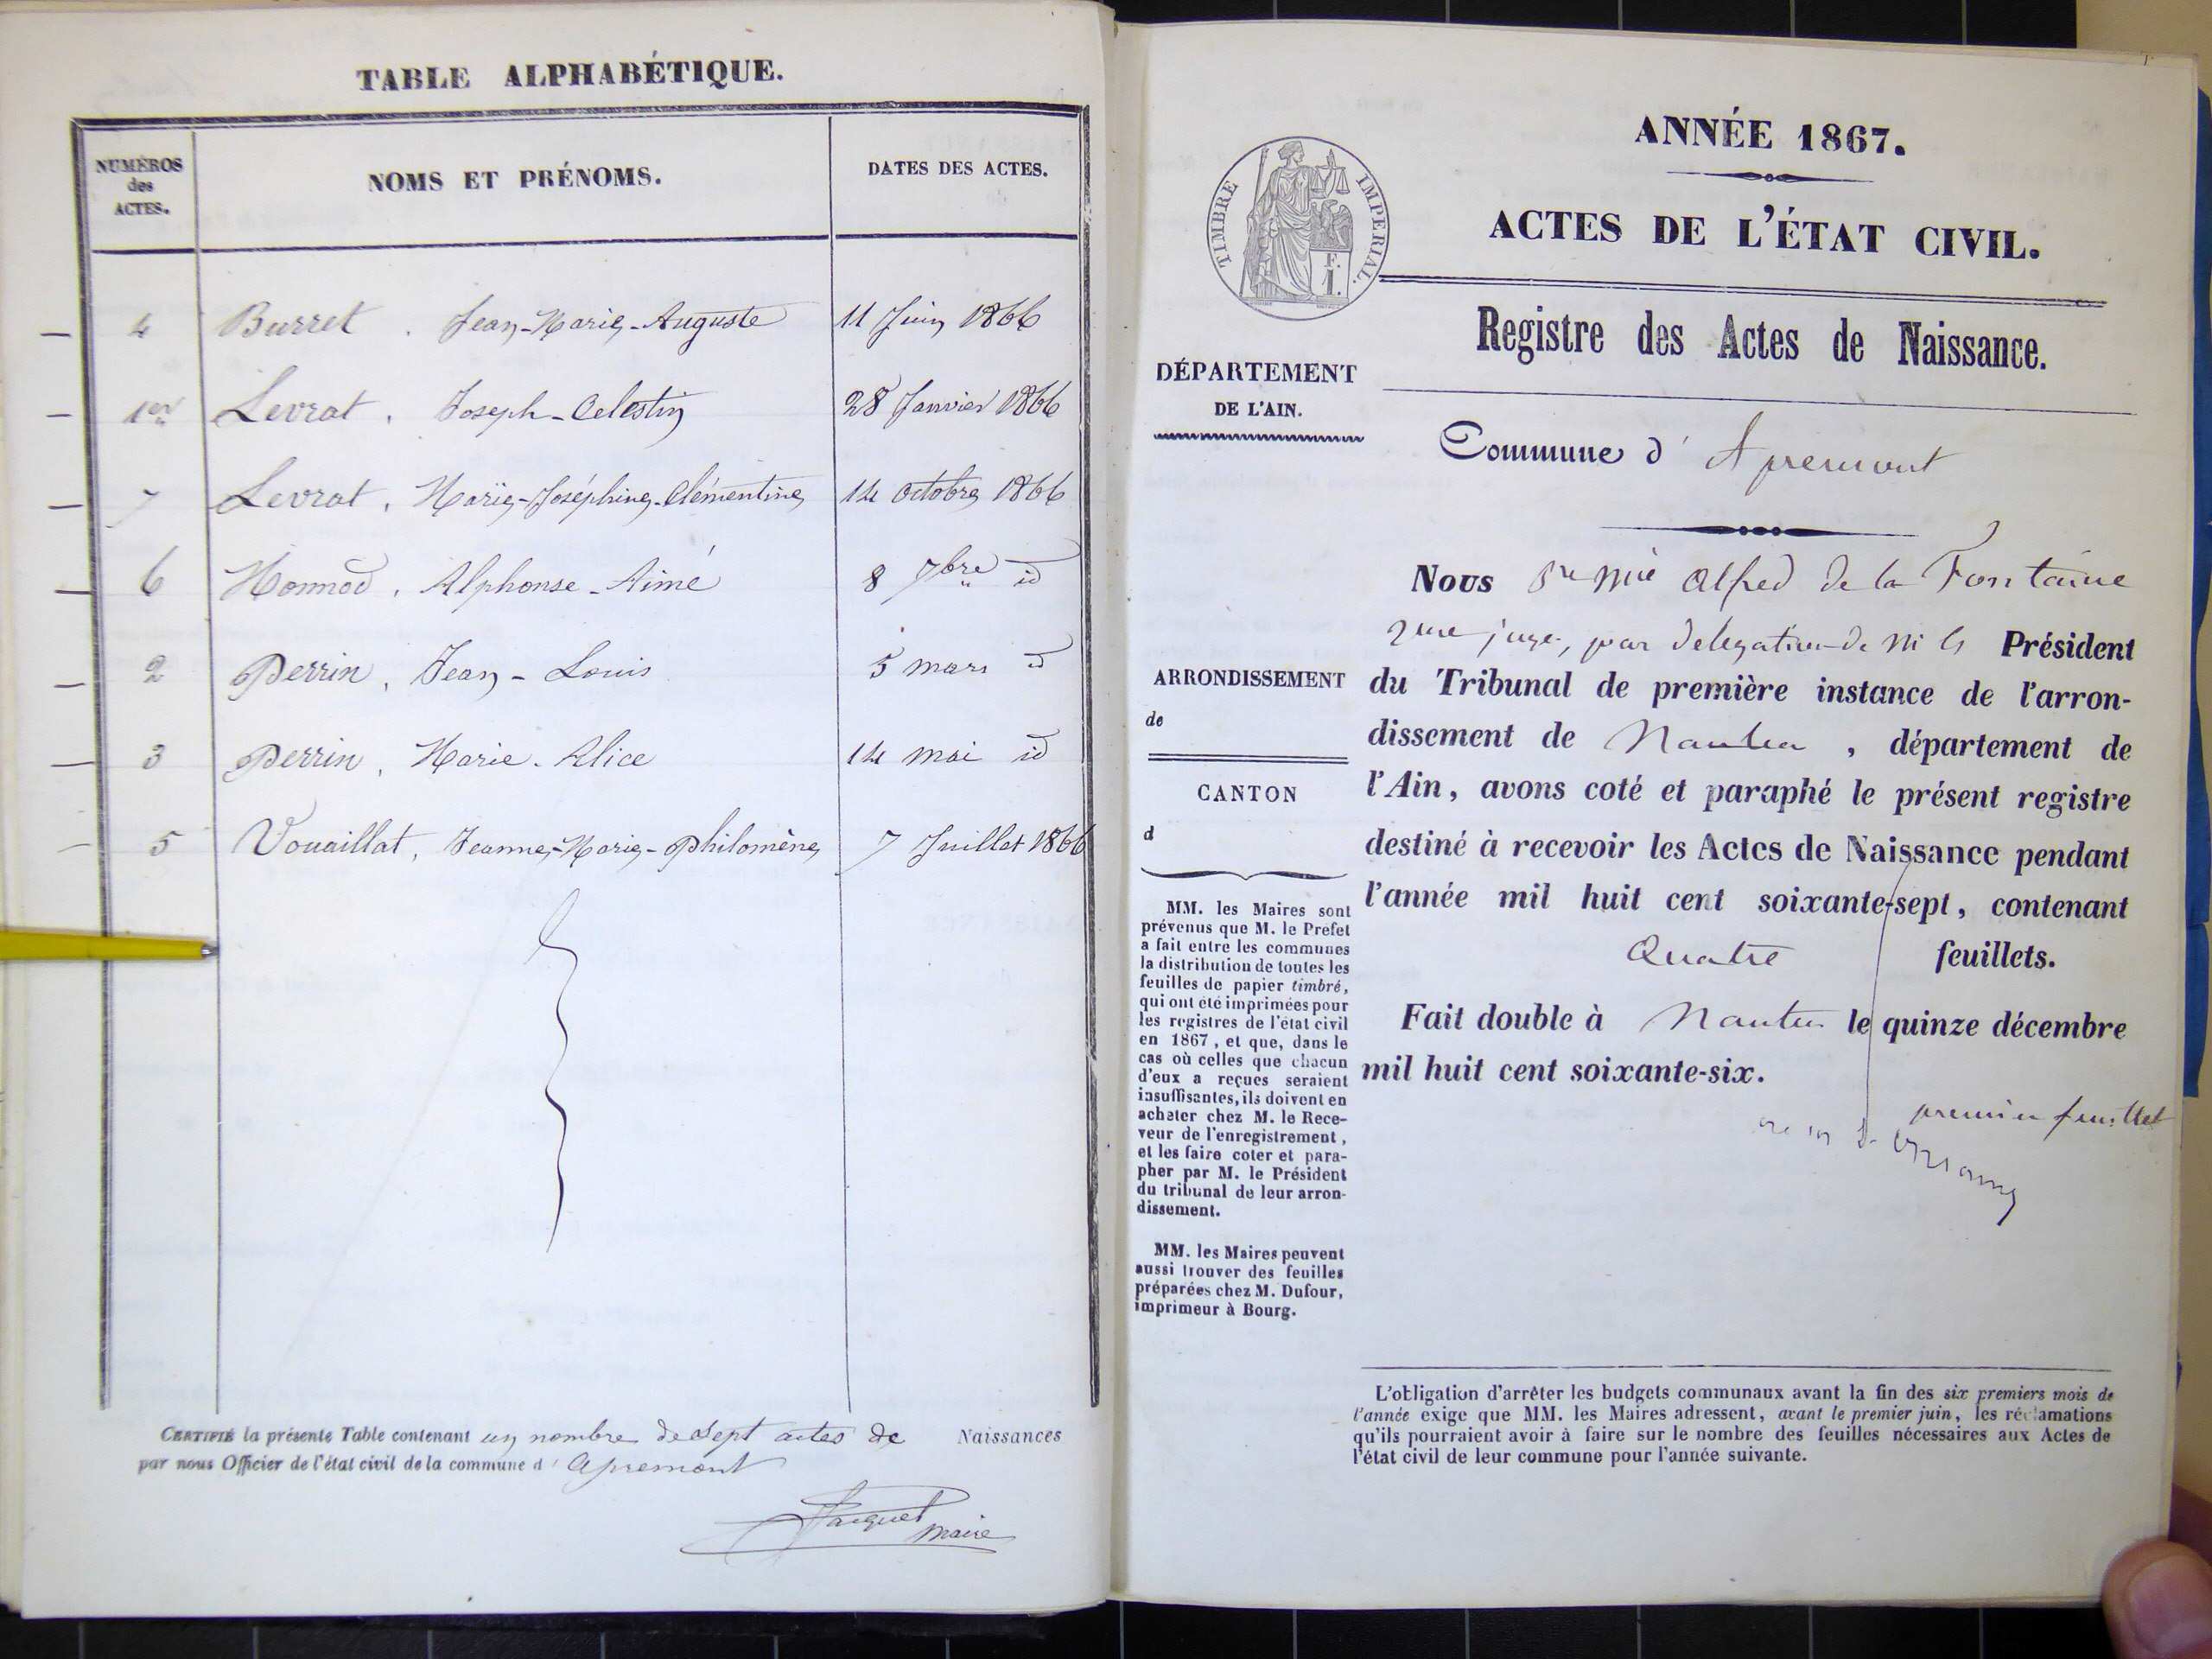 TABLE ALPHABÉTIQUE.
NUMÉROS des ACTES. NOMS ET PRÉNOMS. DATES DES ACTES.
4 Burret. Jean-Marie-Auguste 11 Juin 1866
1er Levrat, Joseph-Celestin 28 Janvier 1866
7 Levrat, Marie-Joséphine-Clémentine 14 Octobre 1866
6 Monnod, Alphonse-Aimé 8 7bre id
2 Perrin, Jean-Louis 5 mars id
3 Perrin, Marie-Alice 14 mai id
5 Vouaillat, Jeanne-Marie-Philomène 7 Juillet 1866
CERTIFIÉ la présente Table contenant un nombre de sept actes de Naissances
par nous Officier de l'état civil de la commune d' Apremont
maire
ANNÉE 1867.
ACTES DE L'ÉTAT CIVIL.
TIMBRE IMPÉRIAL.
F.
1.
Registre des Actes de Naissance.
DÉPARTEMENT
DE L'AIN.
Commune d' Apremont
ARRONDISSEMENT
de
CANTON
d
Nous Alfred de la Fontaine
juge, par delegation de Président
du Tribunal de première instance de l'arron-
dissement de Nantua, département de
l'Ain, avons coté et paraphé le présent registre
destiné à recevoir les Actes de Naissance pendant
l'année mil huit cent soixante-sept, contenant
Quatre feuillets.
Fait double à Nantua le quinze décembre
mil huit cent soixante-six.
premier feuillet
MM. les Maires sont
prévenus que M. le Préfet
a fait entre les communes
la distribution de toutes les
feuilles de papier timbré,
qui ont été imprimées pour
les registres de l'état civil
en 1867, et que, dans le
cas où celles que chacun
d'eux a reçues seraient
insuffisantes, ils doivent en
acheter chez M. le Rece-
veur de l'enregistrement,
et les faire coter et para-
pher par M. le Président
du tribunal de leur arron-
dissement.
MM. les Maires peuvent
aussi trouver des feuilles
préparées chez M. Dufour,
imprimeur à Bourg.
L'obligation d'arrêter les budgets communaux avant la fin des six premiers mois de
l'année exige que MM. les Maires adressent, avant le premier juin, les réclamations
qu'ils pourraient avoir à faire sur le nombre des feuilles nécessaires aux Actes de
l'état civil de leur commune pour l'année suivante.